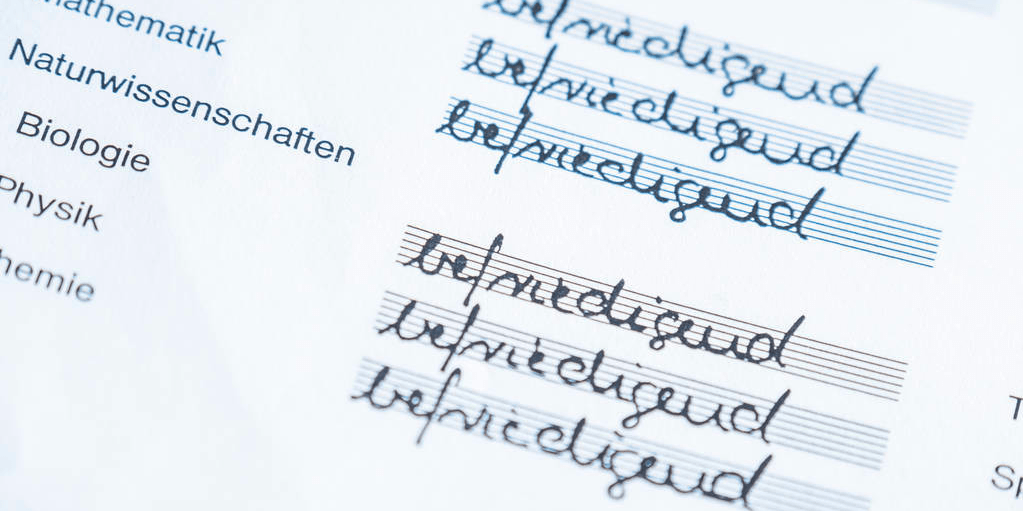 Mathematik befriedigend
Naturwissenschaften befriedigend
befriedigend
Biologie befriedigend
Physik befriedigend
Chemie befriedigend